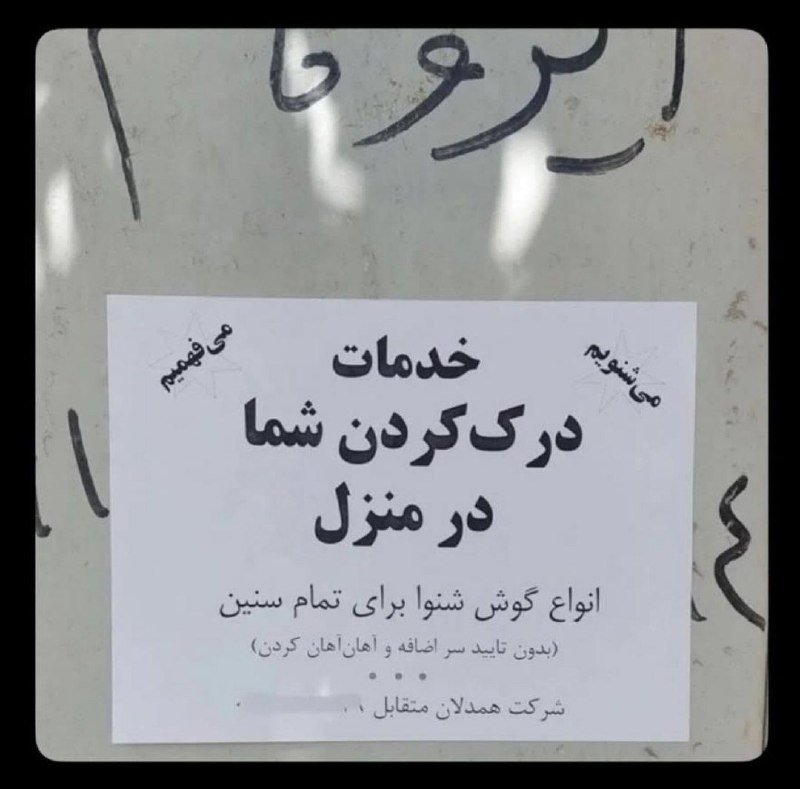 ایزوگام
می‌شنویم
می‌فهمیم
خدمات
درک‌کردن شما
در منزل
انواع گوش شنوا برای تمام سنین
(بدون تایید سر اضافه و آهان‌آهان کردن)
شرکت همدلان متقابل